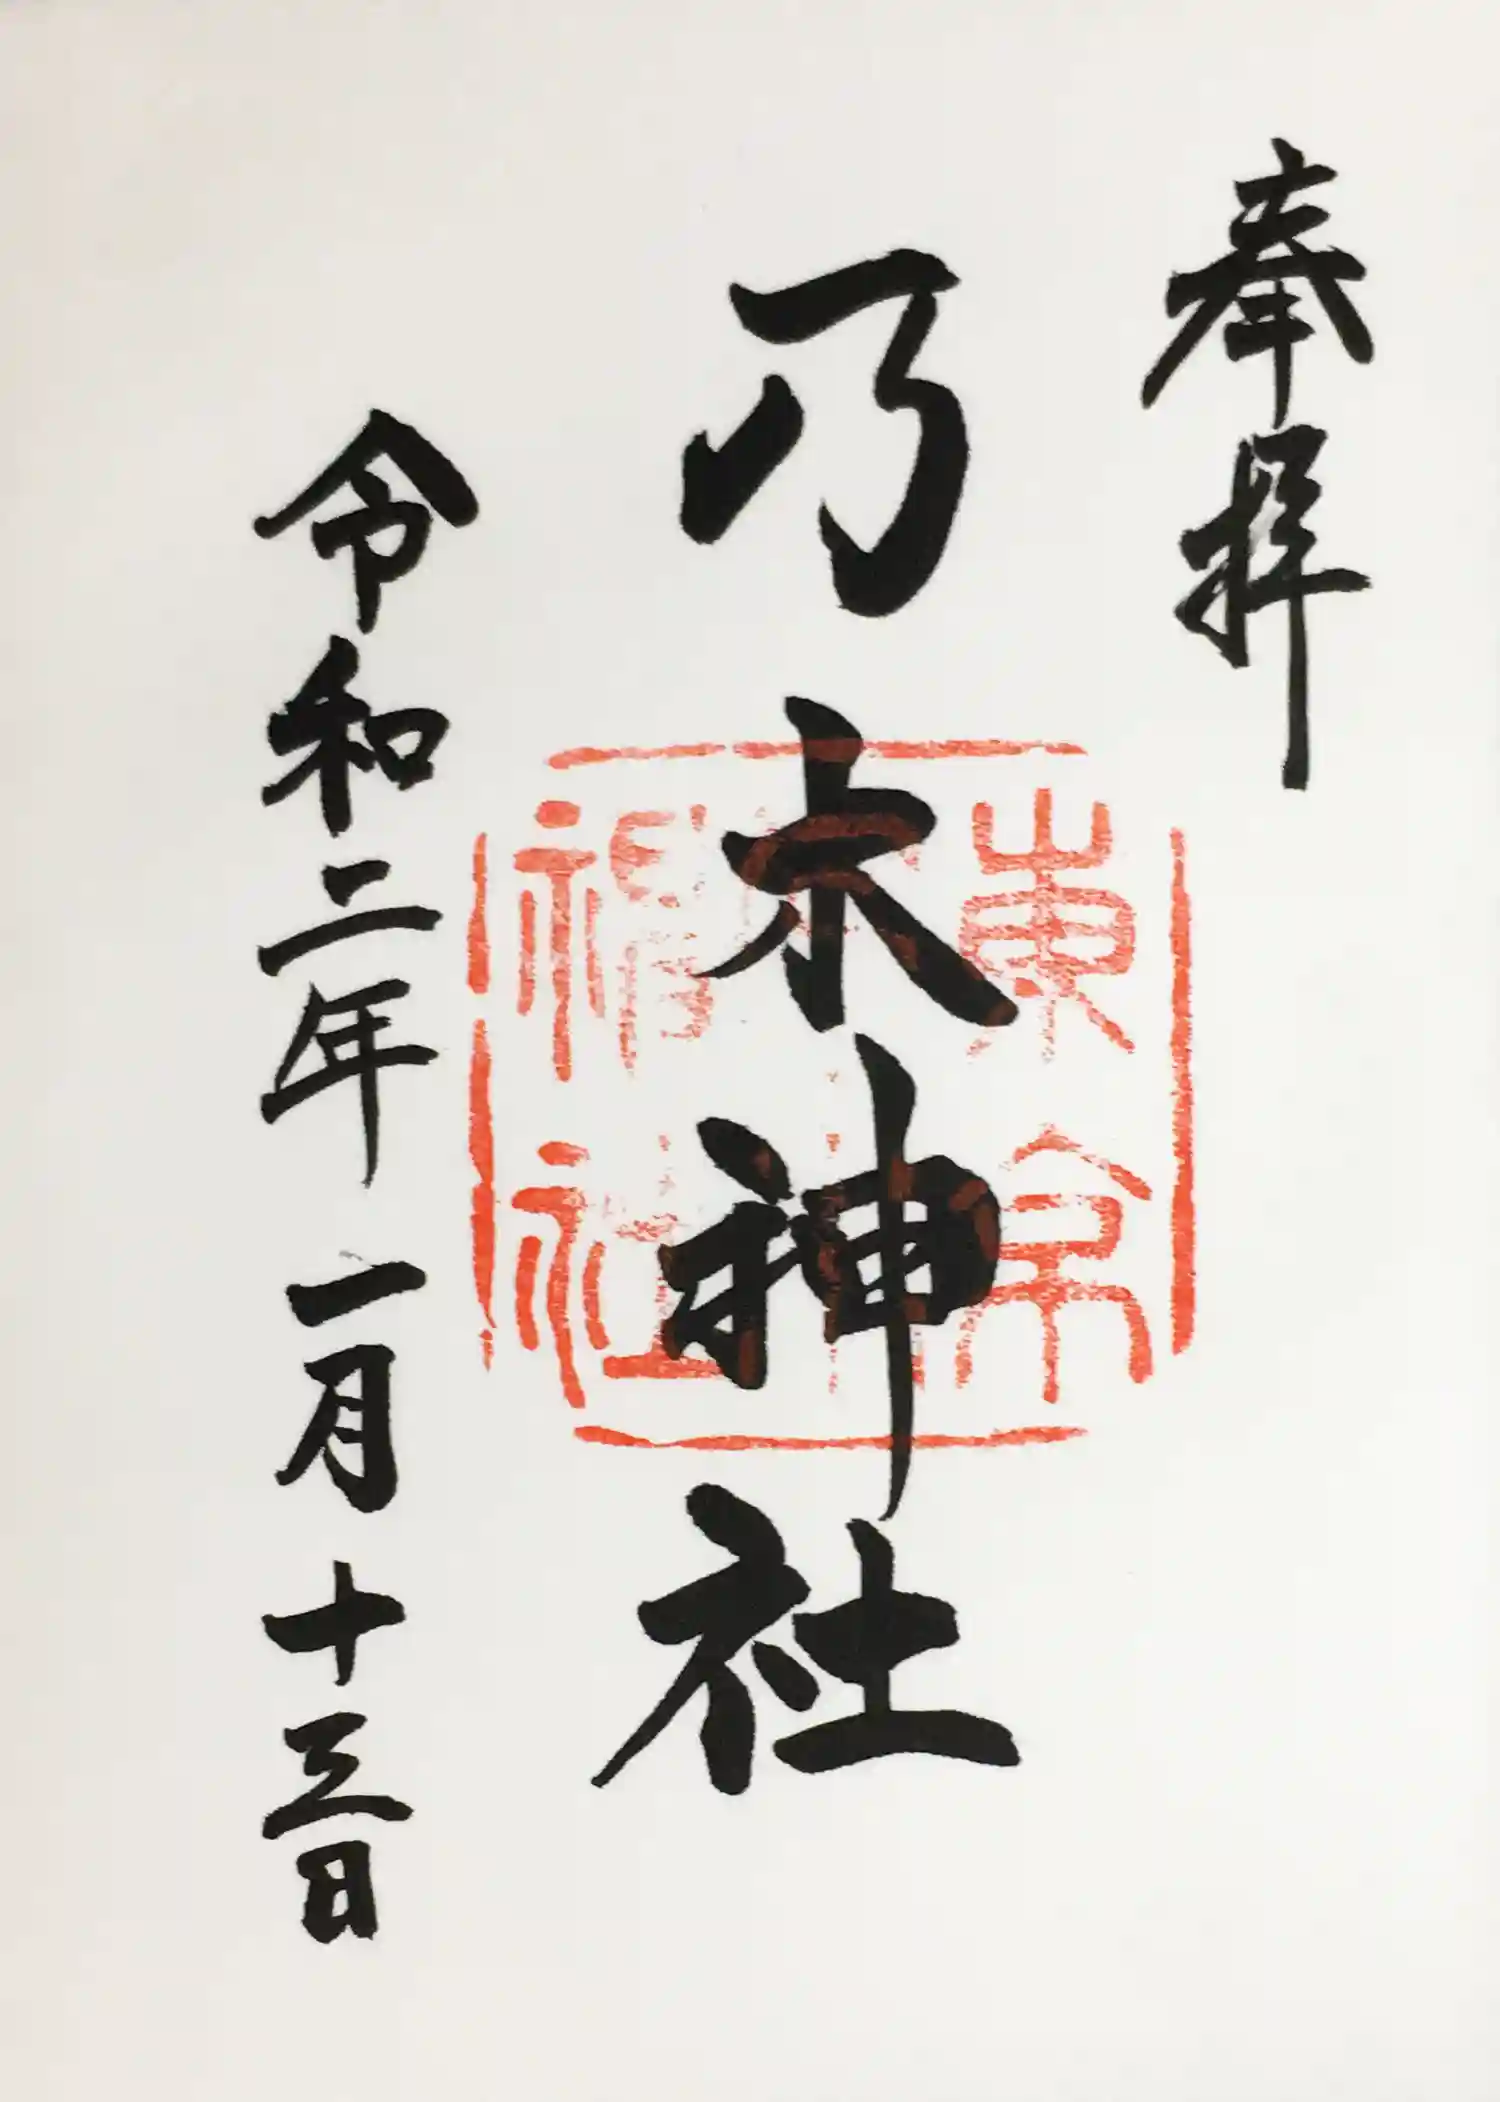 奉拝
乃木神社
令和二年一月十三日
東京
乃木
神社